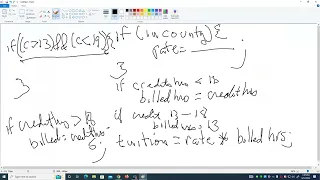 if((c>13)&&(c<19){
}
if (in county){
rate=
}
if credithrs < 13
billed hrs = credit hrs
if credit 13-18
billed hrs = 13
if credithrs > 18
billed = credit hrs -
5;
tuition = rate * billed hrs;